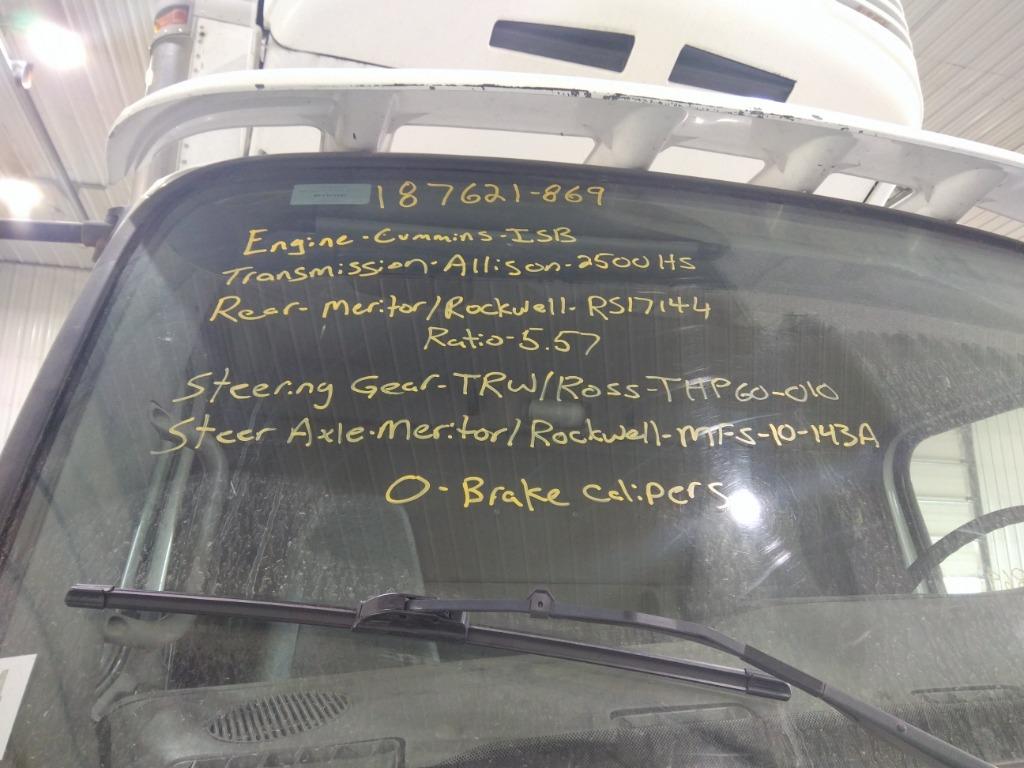 187621-869
Engine-Cummins-ISB
Transmission-Allison-2500HS
Rear-Meritor/Rockwell-RS17144
Ratio-5.57
Steering Gear-TRW/Ross-THP60-010
Steer Axle-Meritor/Rockwell-MFS-10-143A
0-Brake calipers